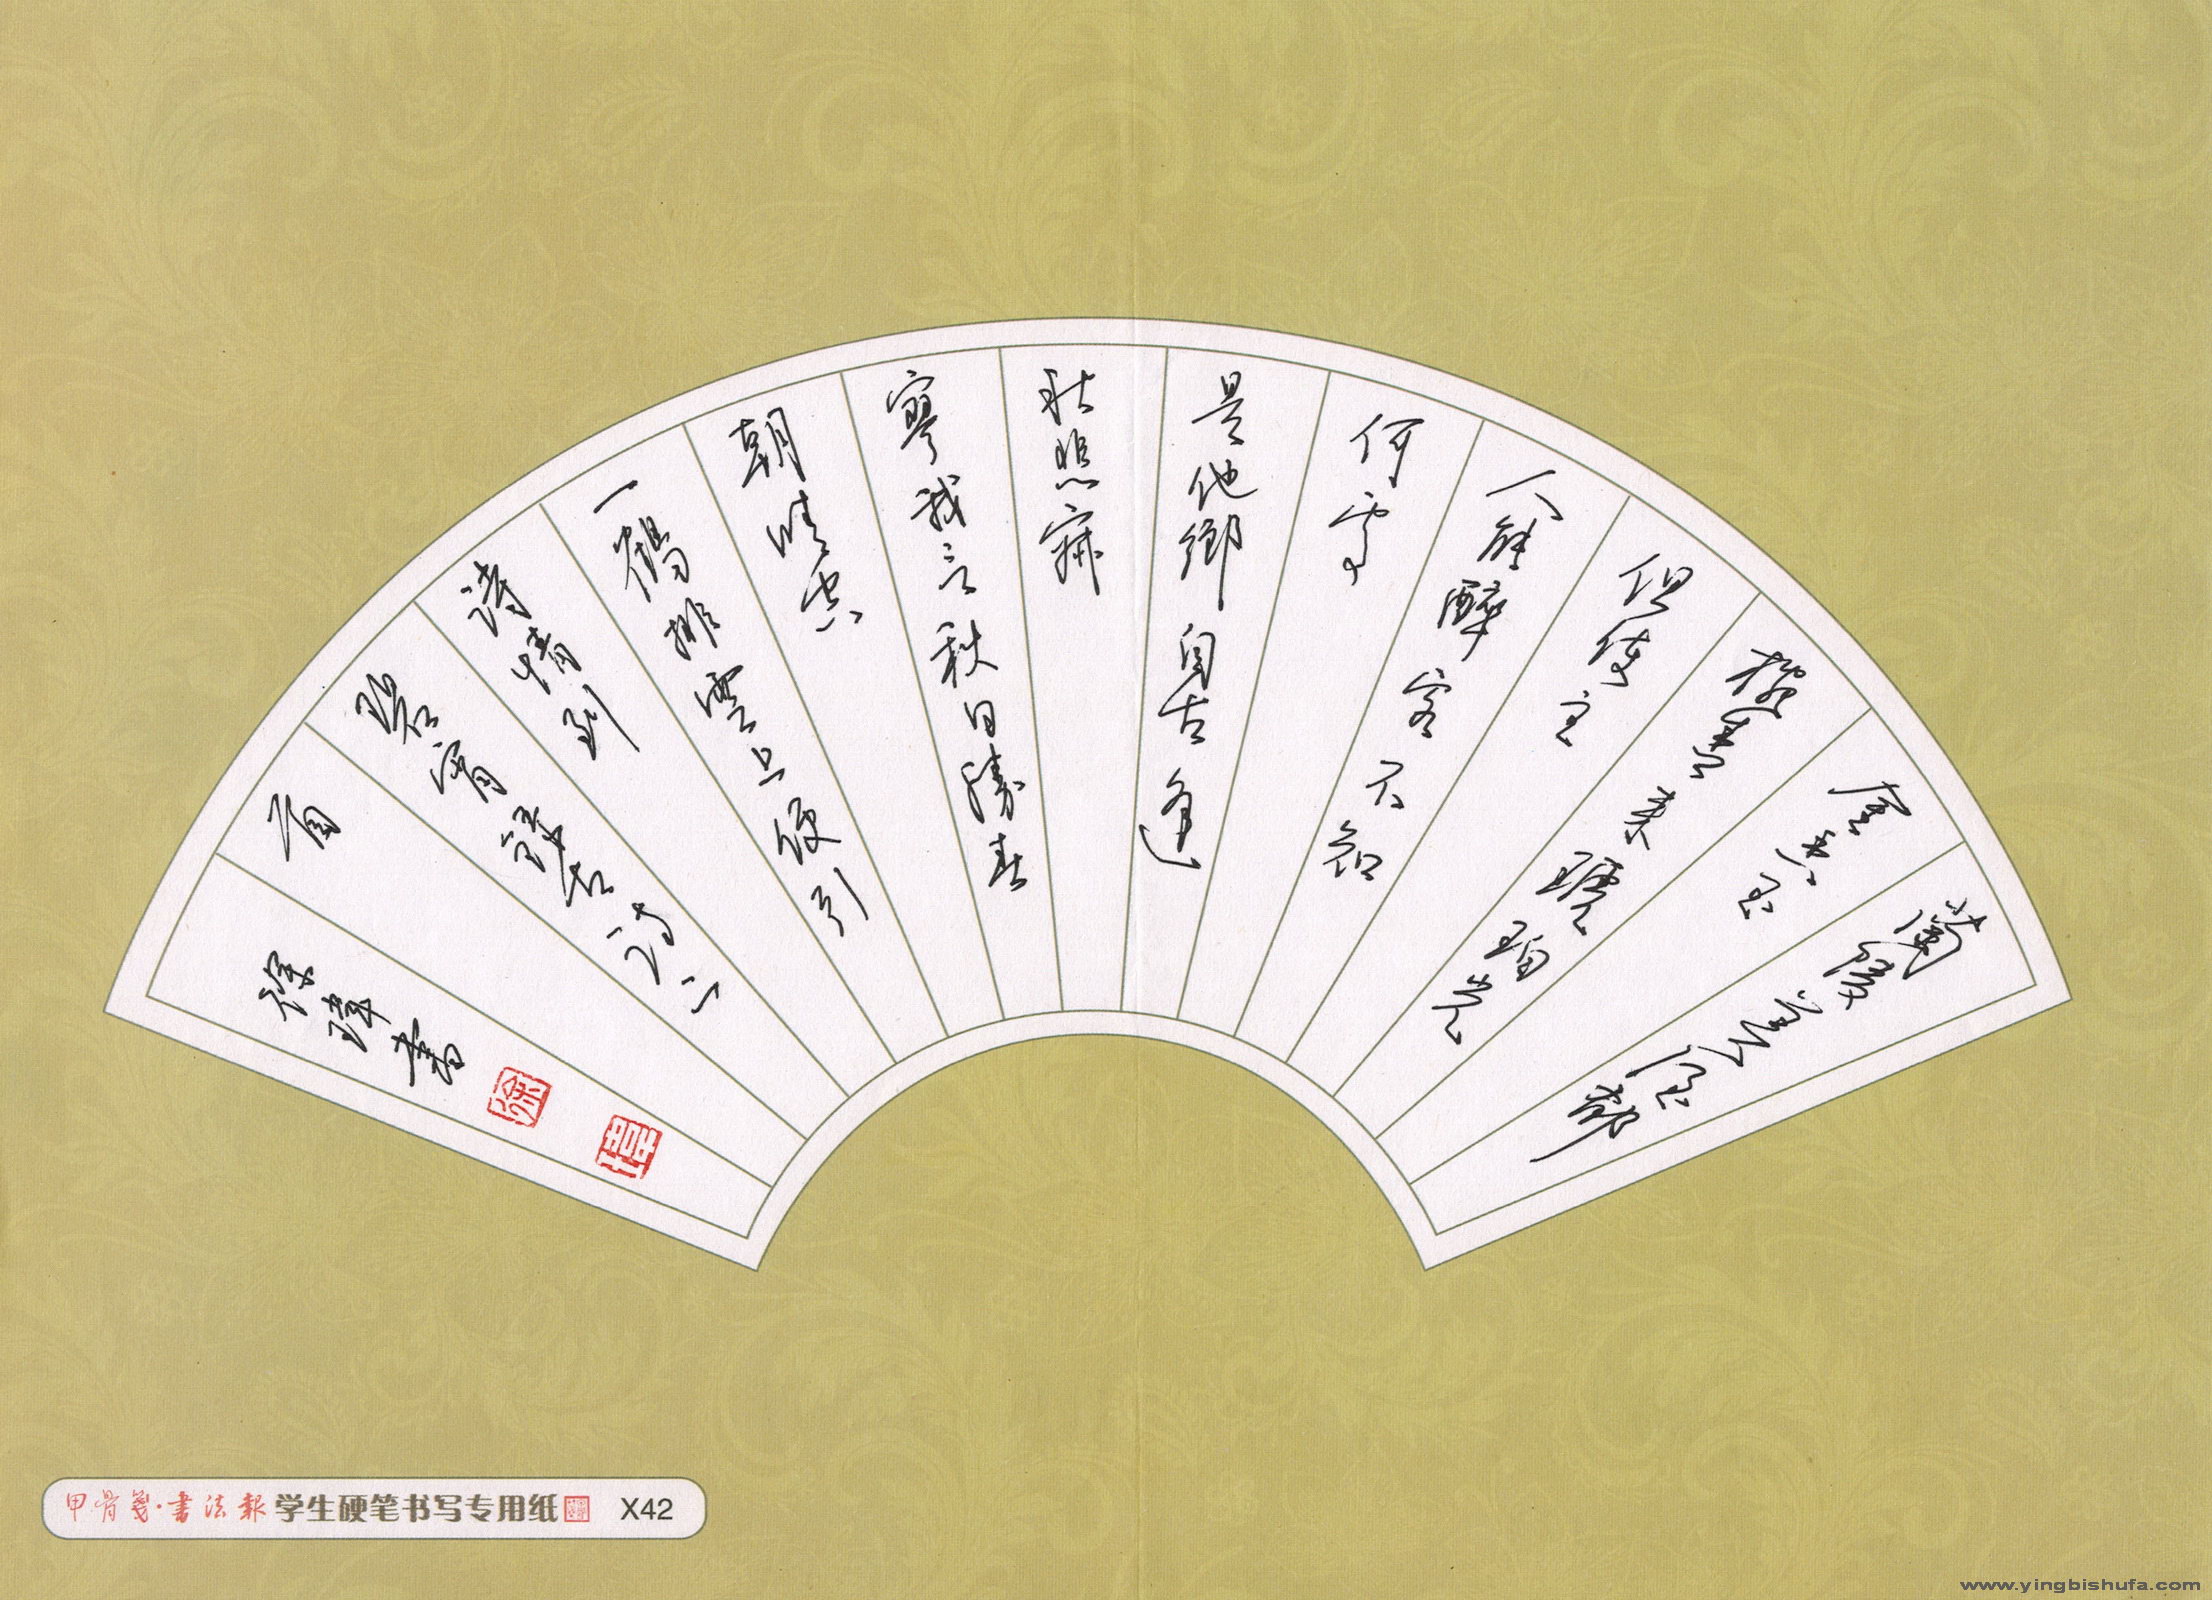 蘭陵美酒鬱
金香玉
椀盛來琥珀光
但使主
人能醉客不知
何處
是他鄉自古逢
秋悲寂
寥我言秋日勝春
朝晴空
一鶴排雲上便引
詩情到
碧霄唐詩二
首
徐瑋書
徐
瑋
甲骨箋·書法報 学生硬笔书写专用纸 X42
www.yingbishufa.com